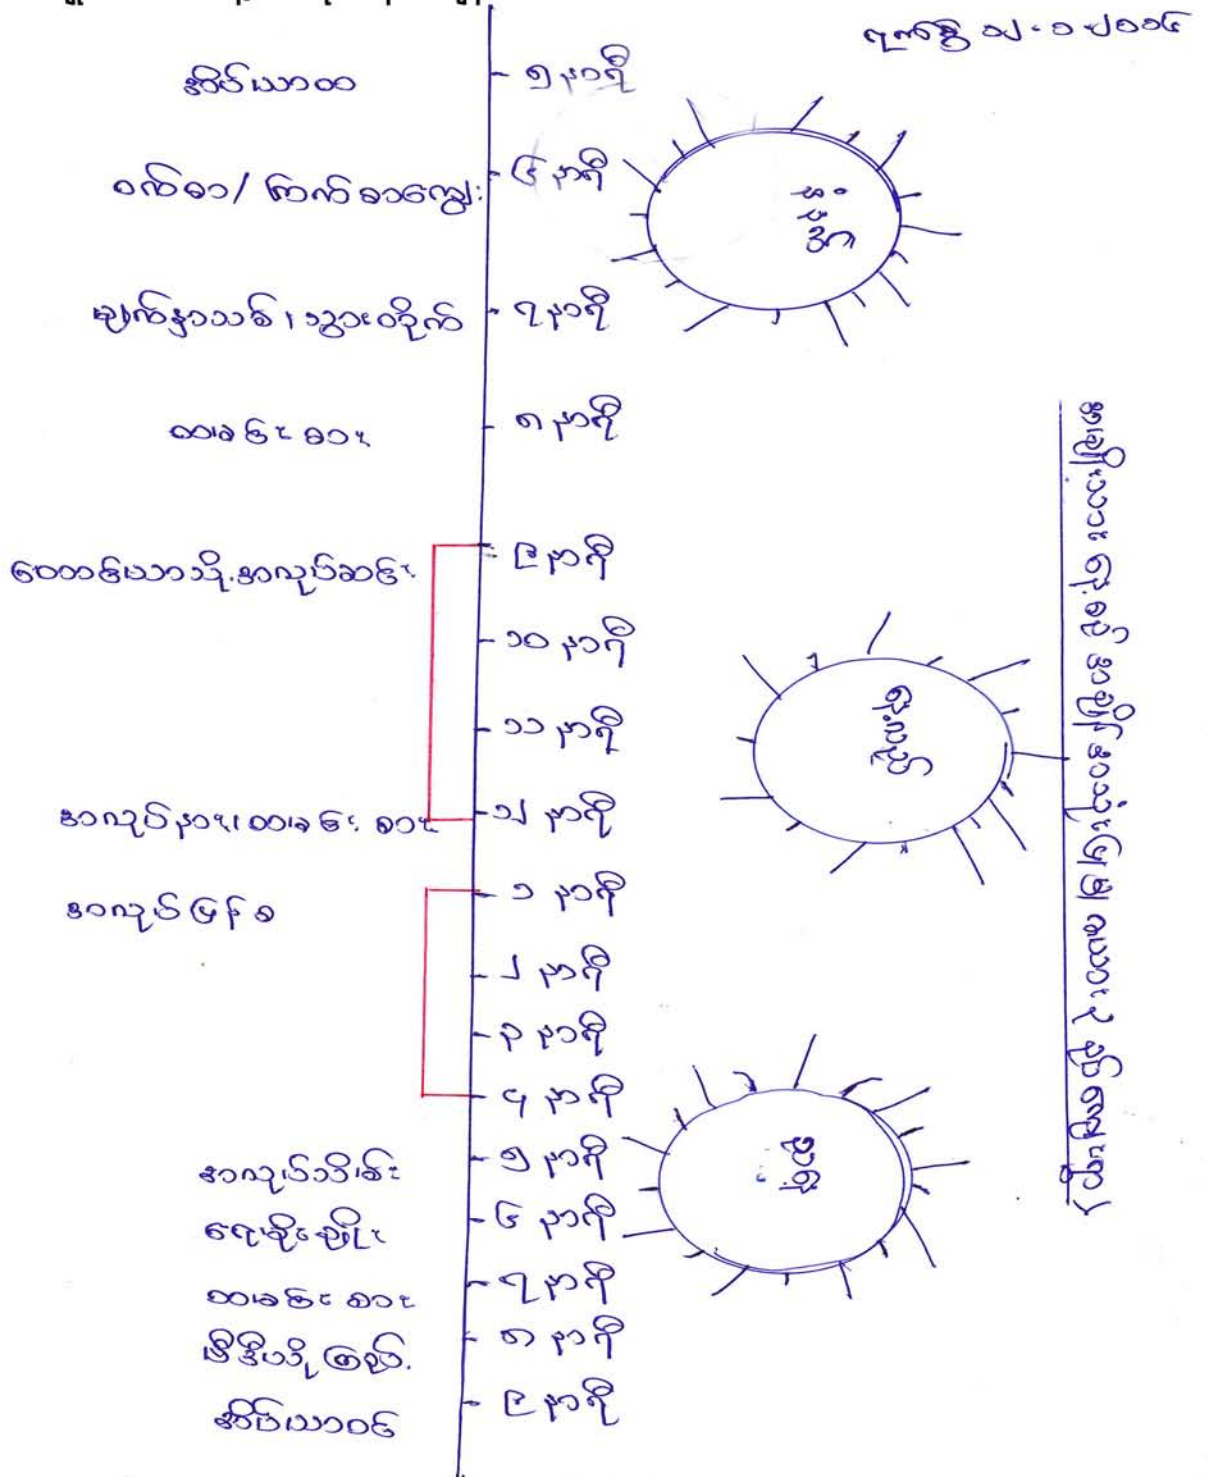 ရက်စွဲ ၁၂-၁-၂၀၁၄
အိပ်ယာထ
၅ နာရီ
ဝက်စာ/ ကြက်စာကျွေး
၆ နာရီ
မျက်နှာသစ်၊ သွားတိုက်
၇ နာရီ
ထမင်းစား
၈ နာရီ
တောင်ယာသို့ အလုပ်ဆင်း
၉ နာရီ
၁၀ နာရီ
၁၁ နာရီ
အလုပ်နား၊ ထမင်းစား
၁၂ နာရီ
အလုပ်ပြန်စ
၁ နာရီ
၂ နာရီ
၃ နာရီ
၄ နာရီ
အလုပ်သိမ်း
၅ နာရီ
ရေမိုးချိုး
၆ နာရီ
ထမင်းစား
၇ နာရီ
ဗီဒီယို ကြည့်
၈ နာရီ
အိပ်ယာဝင်
၉ နာရီ
နံနက်
နေ့လည်
ညနေ
အမျိုးသား နေ့စဉ် အချိန် အသုံးပြုမှု ဇယား